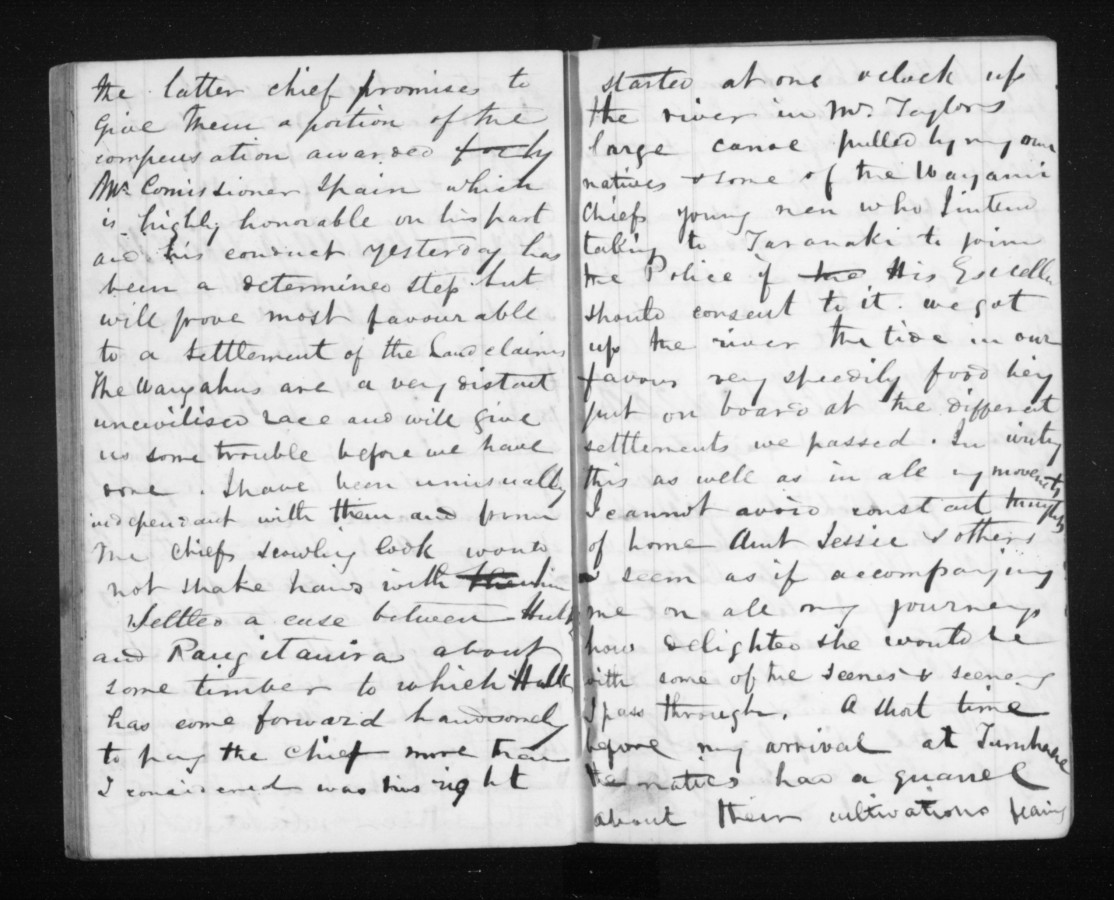 the latter chief promises to
give them a portion of the
compensation awarded
Mr. Comissioner Spain which
is highly honorable on his part
and his conduct yesterday has
been a determined step but
will prove most favourable
to a settlement of the Land claims
The are a very distant
uncivilised race and will give
us some trouble before we have
done. I have been unusually
independant with them and from
the chiefs scowling look would
not shake hands with him
Settled a case between
and Rangitauira about
some timber to which
has come forward handsomely
to pay the chief more than
I considered was his right
started at one oclock up
the river in Mr. Taylors
large canoe pulled by my own
natives & some of the
Chiefs young men who I intend
taking to Taranaki to join
the Police if the His Excelly
should consent to it. we got
up the river the tide in our
favour very speedily food being
put on board at the different
settlements we passed. In writing
this as well as in all my movements
I cannot avoid constant thoughts
of home Aunt Jessie & others
seem as if accompanying
me on all my journeys
how delighted she would be
with some of the scenes & scenery
I pass through. A short time
before my arrival at
the natives had a quarrel
about their cultivations